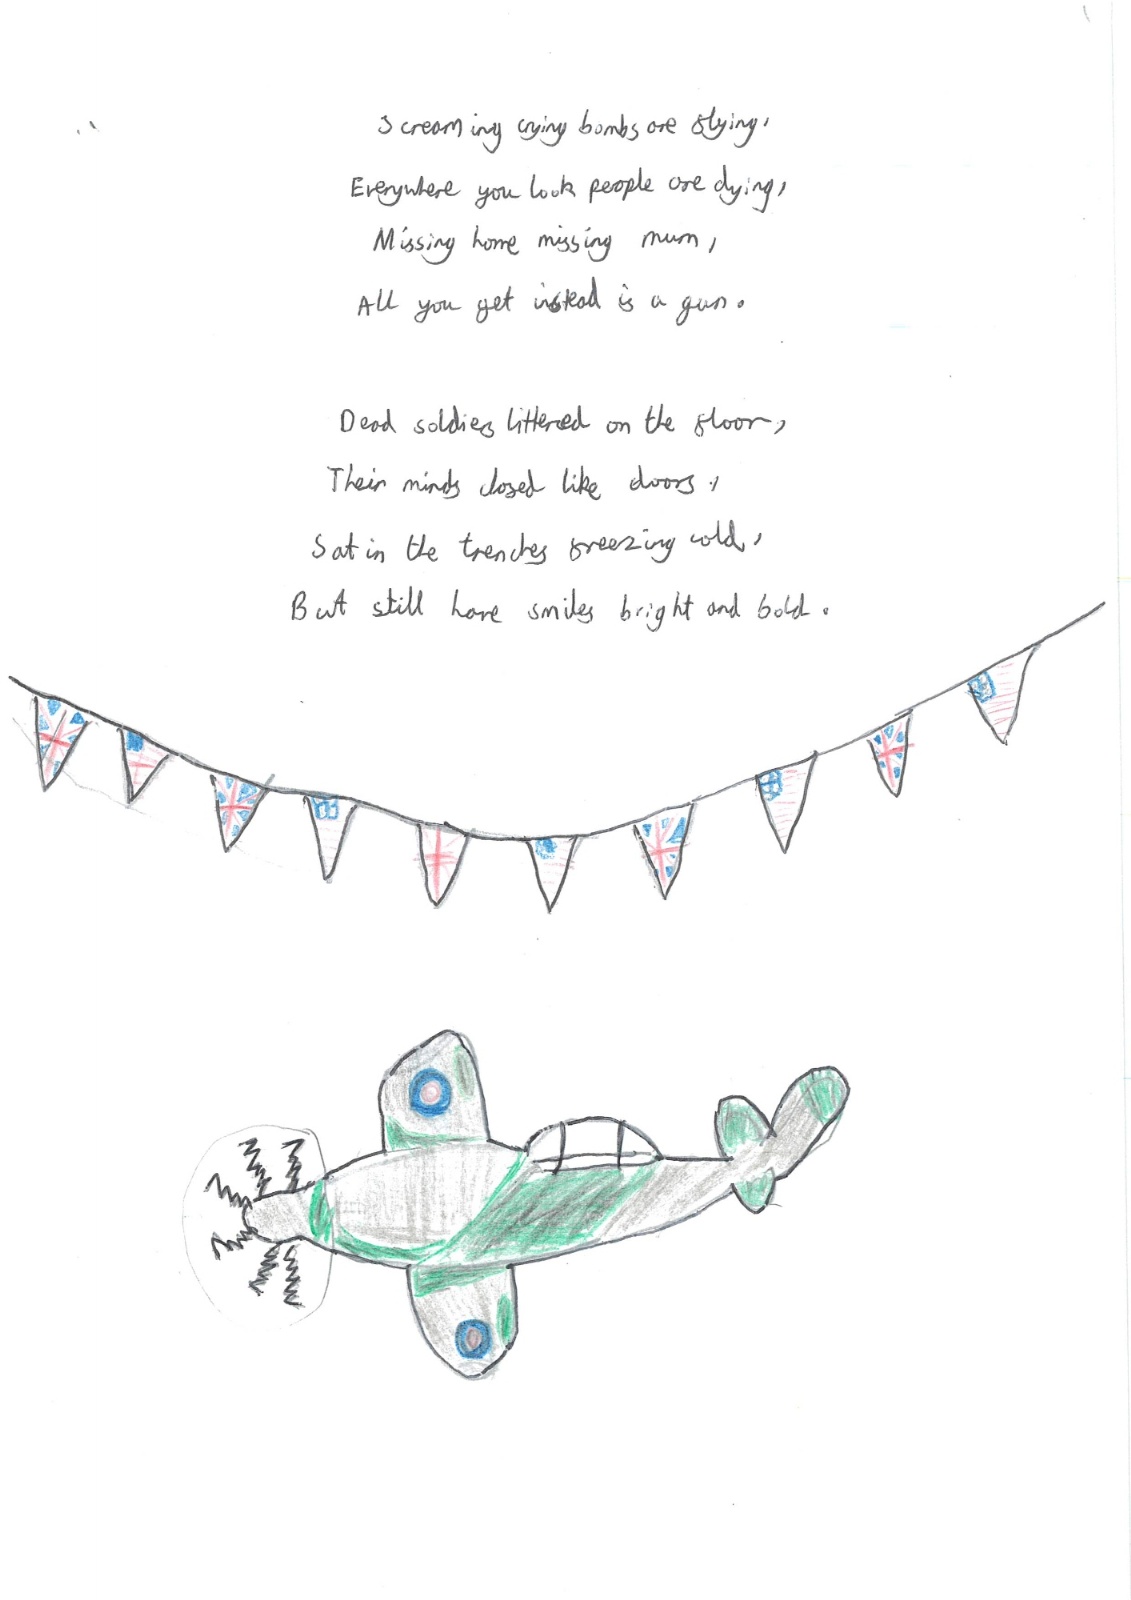 Screaming crying bombs are flying,
Everywhere you look people are dying,
Missing home missing mum,
All you get instead is a gun.
Dead soldiers littered on the floor,
Their minds closed like doors,
Sat in the trenches freezing cold,
But still have smiles bright and bold.